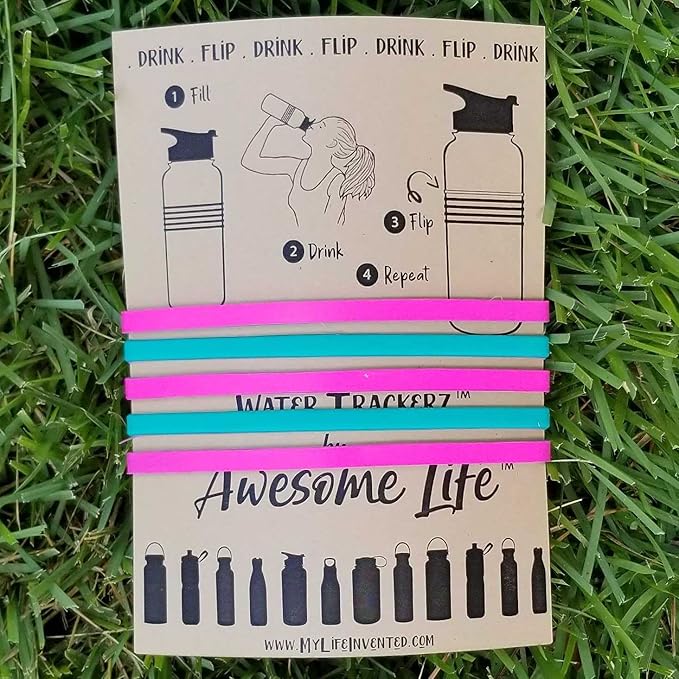 . DRINK . FLIP . DRINK . FLIP . DRINK . FLIP . DRINK
1 Fill
2 Drink
3 Flip
4 Repeat
WATER TRACKERZ™
by
AWESOME LIFE™
WWW.MYLIFEINVENTED.COM